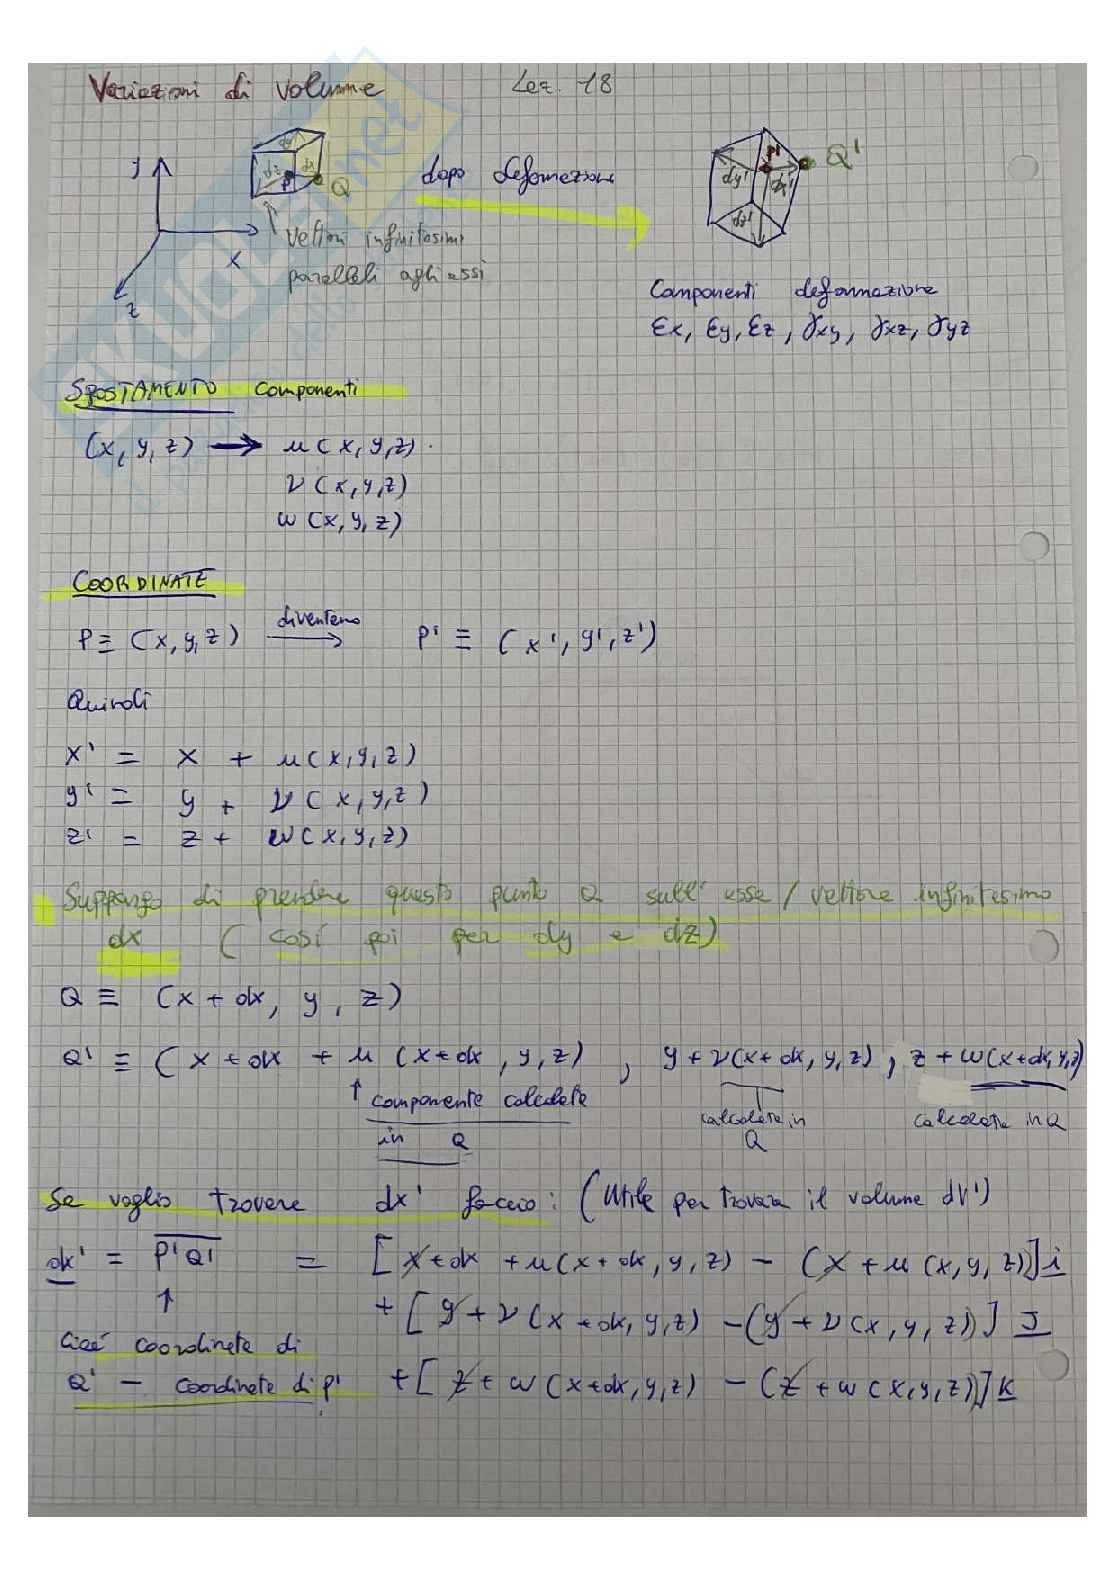 Variazioni di volume Lez. 18
y
x
z
dy
dz
dx
P
Q
dopo deformazione
P'
Q'
dy'
dx'
dz'
vettori infinitesimi
paralleli agli assi
Componenti deformazione
εx, εy, εz, γxy, γxz, γyz
SPOSTAMENTO componenti
(x, y, z) → u(x, y, z).
v(x, y, z)
w(x, y, z)
COORDINATE
P ≡ (x, y, z) diventano → P' ≡ (x', y', z')
Quindi
x' = x + u(x, y, z)
y' = y + v(x, y, z)
z' = z + w(x, y, z)
Suppongo di prendere questo punto Q sull'asse / vettore infinitesimo
dx (così poi per dy e dz)
Q ≡ (x + dx, y, z)
Q' ≡ (x + dx + u(x+dx, y, z), y + v(x+dx, y, z), z + w(x+dx, y, z)
↑ componente calcolata
in Q
calcolata in
Q
calcolata in Q
Se voglio trovare dx' faccio: (Utile per trovare il volume dV')
dx' = P'Q' = [x + dx + u(x+dx, y, z) - (x + u(x, y, z))] i
↑ + [y + v(x+dx, y, z) - (y + v(x, y, z))] j
Cioé coordinate di
Q' - coordinate di P' + [z + w(x+dx, y, z) - (z + w(x, y, z))] k